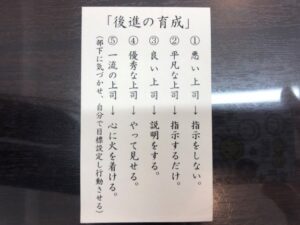 「後進の育成」
①悪い上司→指示をしない。
②平凡な上司→指示するだけ。
③良い上司→説明をする。
④優秀な上司→やって見せる。
⑤一流の上司→心に火を着ける。
(部下に気づかせ、自分で目標設定し行動させる)